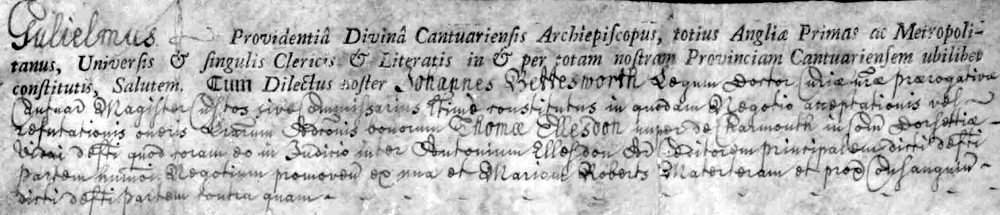 Gulielmus Providentiâ Divinâ Cantuariensis Archiepiscopus, totius Angliæ Primas ac Metropoli-
tanus, Universis & singulis Clericis & Literatis in & per totam nostram Provinciam Cantuariensem ubilibet
constitutis, Salutem. Cum Dilectus noster Johannes Bettesworth Legum Doctor Curiæ nræ prærogativæ
Cantuar Magister Custos sive Commissarius ltime constitutus in quodam Negotio acceptationis vel
refutationis oneris Lrarum Adconis bonorum Thomæ Ellesdon nuper de Charmouth in Com Dorsettiæ
Vidui defti quod coram eo in Judicio inter Antonium Ellesdon Creditorem principalem dicti defti
partem hmoi Negotium promoven ex una et Mariam Roberts Materteram et prox Consanguin
dicti defti partem contra quam